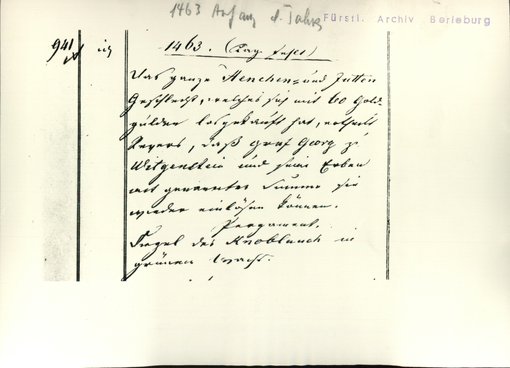 1463 Anfang d. Jahres
Fürstl. Archiv Berleburg
941 
1463. (Tag fehlt)
Das ganze Henchen- und Jutten
Geschlecht, welches sich mit 60 Gold-
gulden losgekauft hat, ertheilt
Revers, daß Graf Georg zu
Witgenstein und seine Erben
mit genannter Summe sie
wieder einlösen können.
Pergament.
Siegel des Knoblauch in
grünem Wachs.